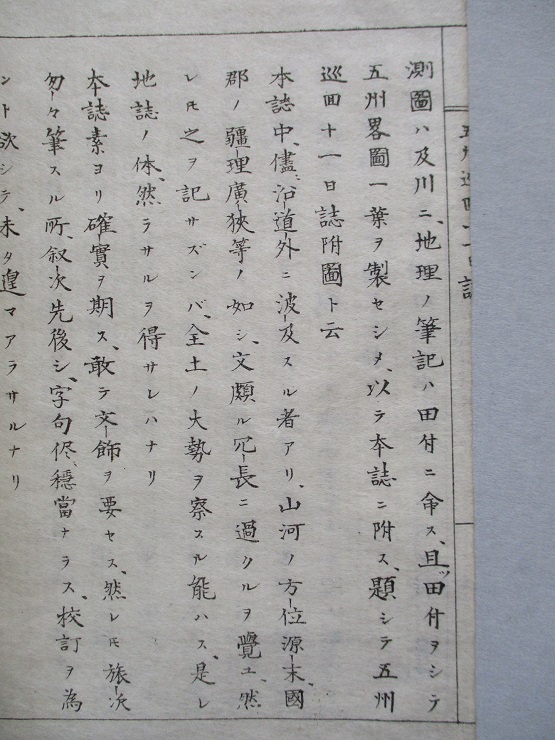 五州巡回十一日誌
測圖ハ及川ニ、地理ノ筆記ハ田付ニ命ス、且ツ田付ヲシテ
五州畧圖一葉ヲ製セシメ、以テ本誌ニ附ス、題シテ五州
巡回十一日誌附圖ト云
本誌中、儘沿道外ニ波及スル者アリ、山河ノ方位源末、國
郡ノ疆理廣狹等ノ如シ、文頗ル冗長ニ過クルヲ覺ユ、然
レ𪜈之ヲ記サズンバ、全土ノ大勢ヲ察スル能ハス、是レ
地誌ノ体、然ラサルヲ得サレハナリ
本誌素ヨリ確實ヲ期ス、敢テ文飾ヲ要セス、然レ𪜈旅次
匆々筆スル所、叙次先後シ、字句侭穩當ナラス、校訂ヲ為
ント欲シテ、未タ遑マアラサルナリ